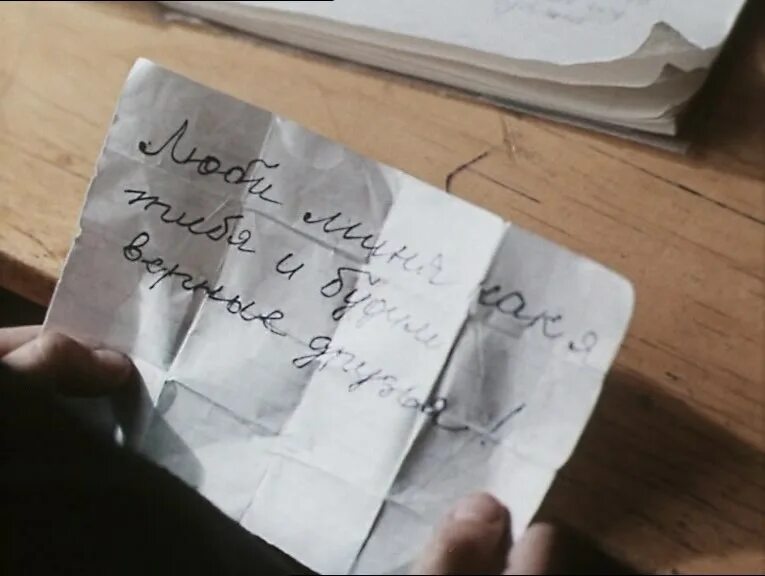 Люби миня как я
тибя и будим
верные друзья!